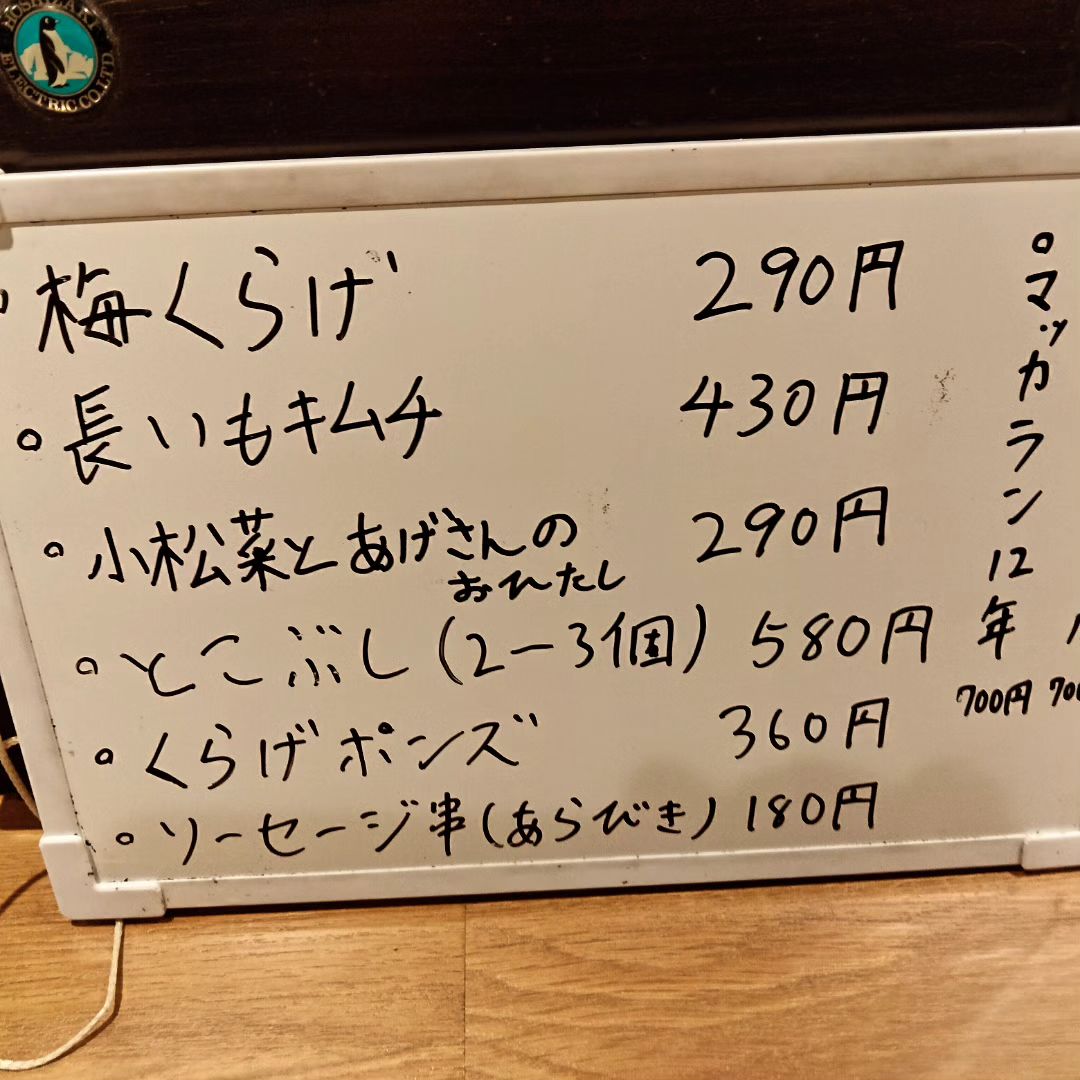 HOSHIZAKI
ELECTRIC CO.,LTD.
梅くらげ 290円
○長いもキムチ 430円
○小松菜とあげさんの
おひたし 290円
○とこぶし(2ー3個) 580円
○くらげポンズ 360円
○ソーセージ串(あらびき) 180円
○マッカラン12年
700円